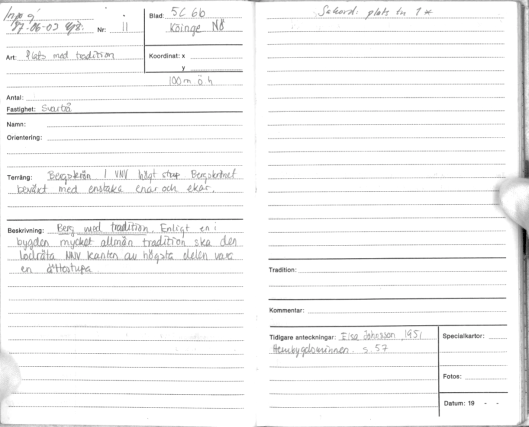 97-06-03
Nr: 11
Blad: 5C 6b
Köinge NÖ
Art: Plats med tradition
Koordinat: x
y
100 m ö h
Antal:
Fastighet: Svartrå
Namn:
Orientering:
Terräng: Bergskrön i VNV högt stup Bergskrönet
bevuxt med enstaka enar och ekar.
Beskrivning: Berg med tradition. Enligt en i
bygden mycket allmän tradition ska den
lodräta NNV kanten av högsta delen vara
en ättestupa.
plats
Tradition:
Kommentar:
Tidigare anteckningar: Elsa Johansson 1951
Hembygdsminnen s. 57
Specialkartor:
Foton:
Datum: 19 - -